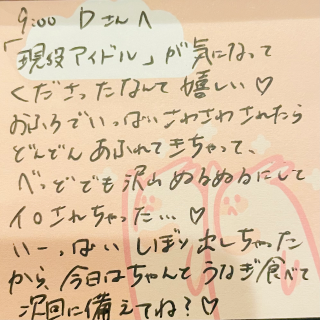 9:00 Dさんへ
「現役アイドル」が気になって
くださったなんて嬉しい♡
おふろでいっぱいさわさわされたら
どんどんあふれてきちゃって、
べっどでも沢山ぬるぬるにして
イロされちゃった…♡
いーっぱいしぼり出しちゃった
から、今日はちゃんとうなぎ食べて
次回に備えてね?♡